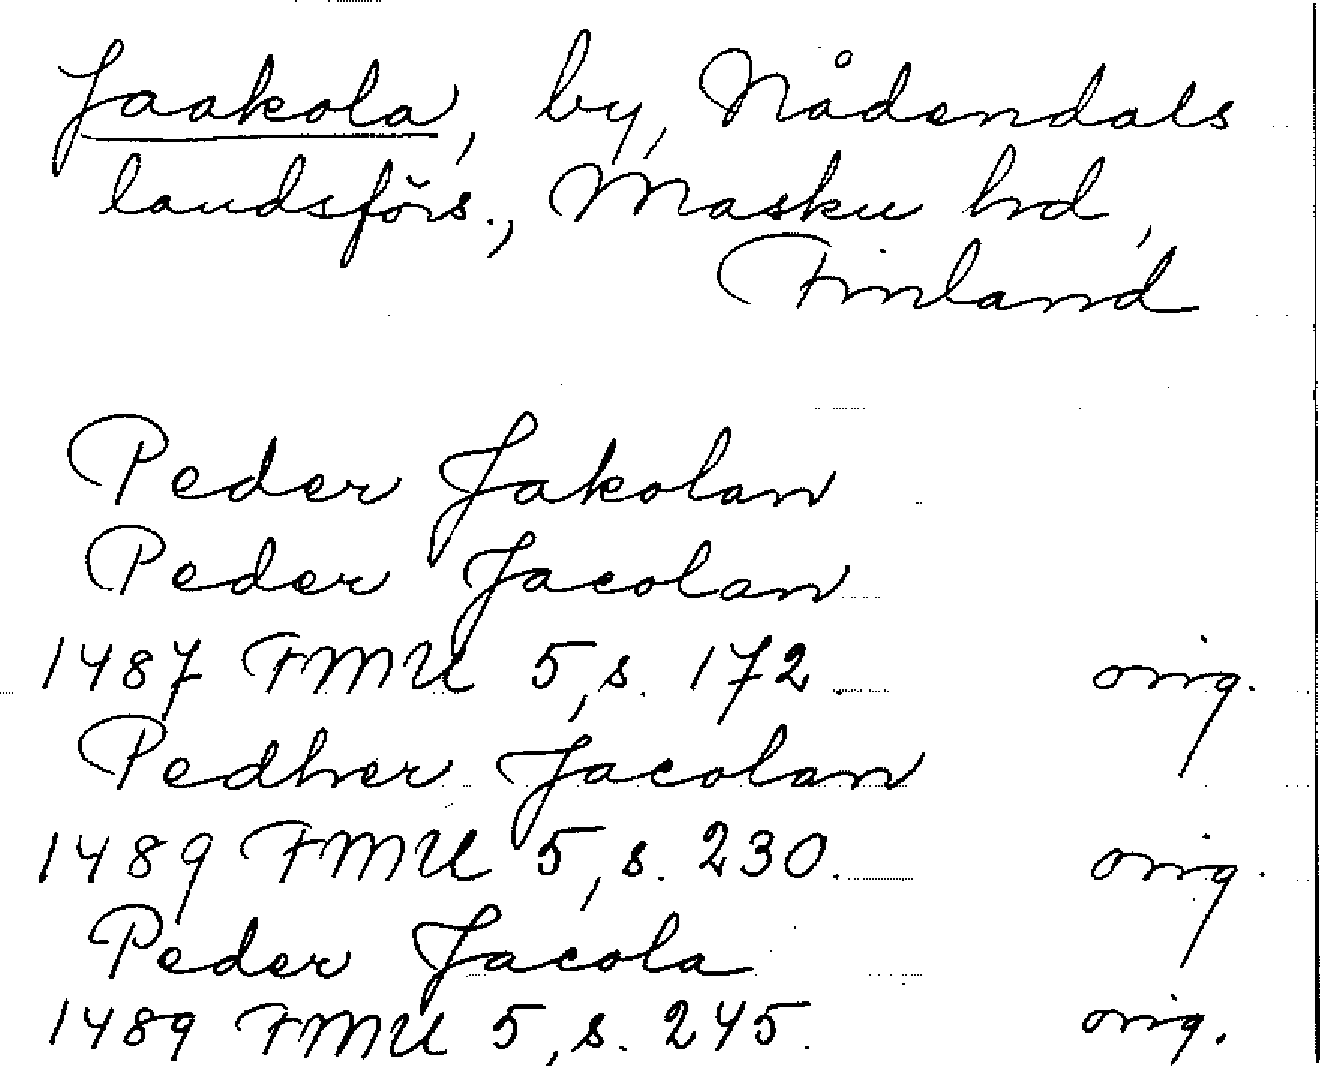 Jaakola, by, Nådendals
landsförs., Masku hd,
Finland
Peder Jakolan
Peder Jacolan
1487 FMU 5, s. 172 orig.
Pedher Jacolan
1489 FMU 5, s. 230. orig.
Peder Jacola
1489 FMU 5, s. 245. orig.